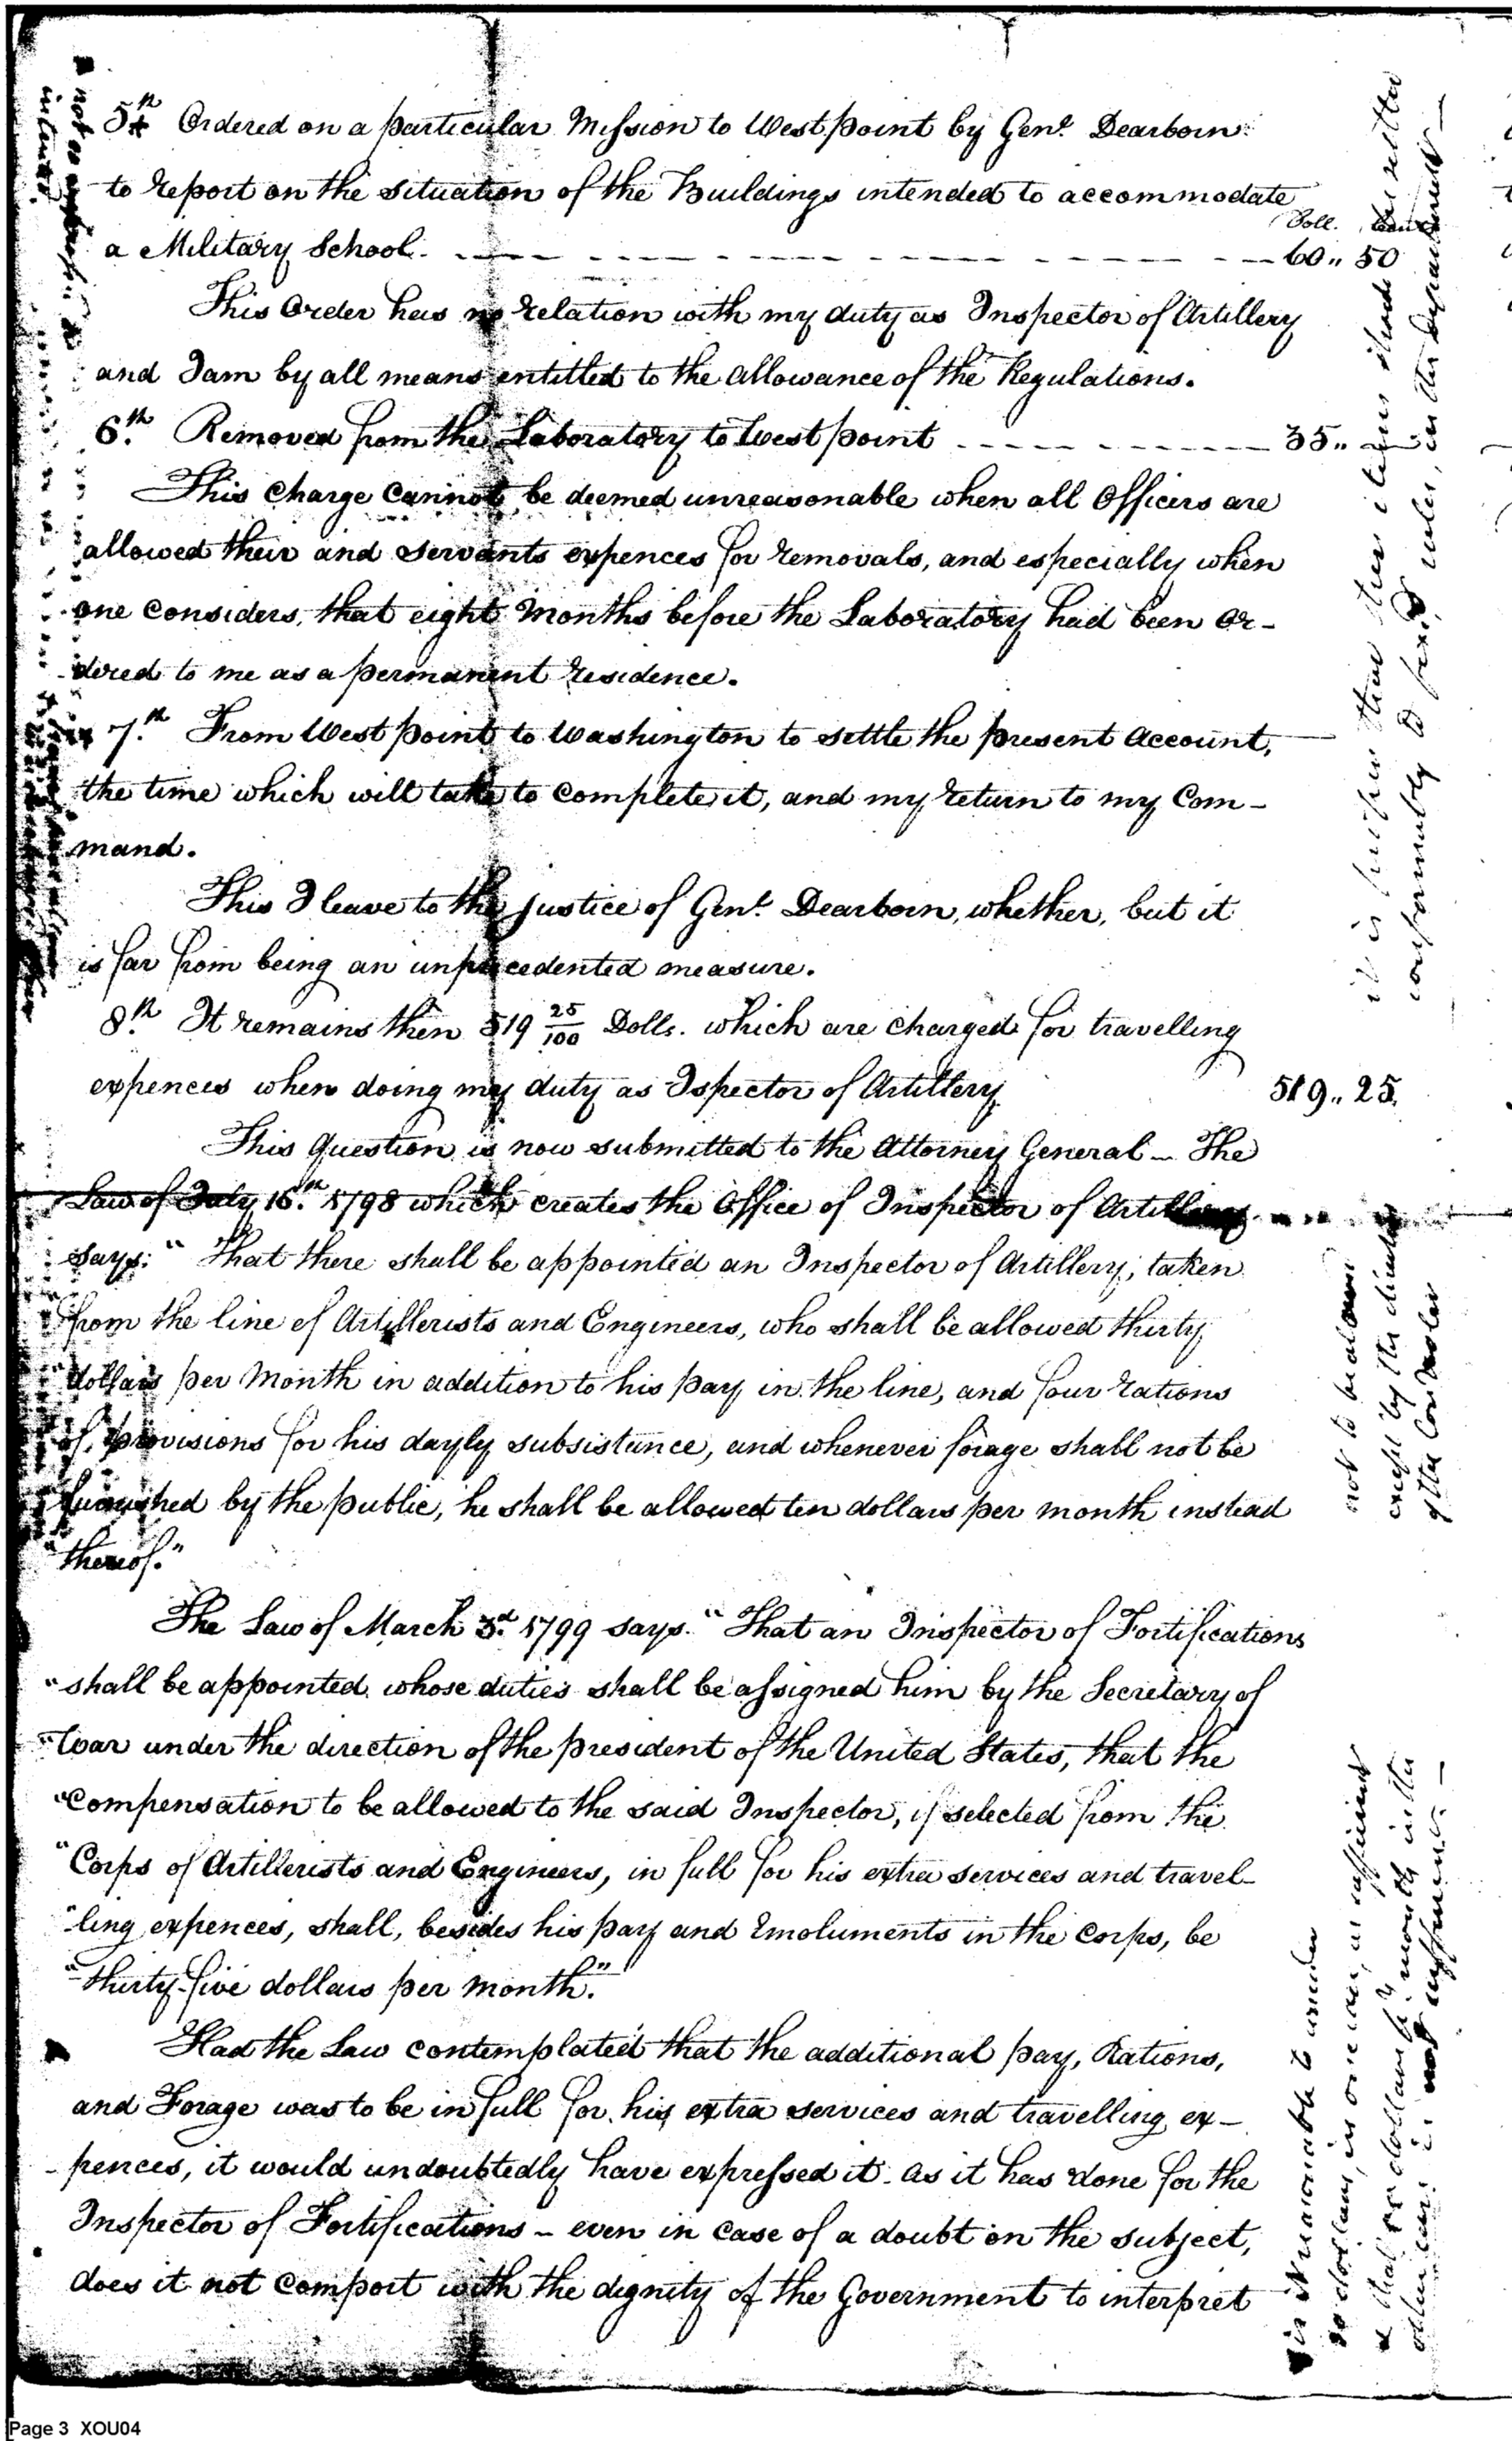 5th Ordered on a particular Mission to West point by Genl. Dearborn
to report on the situation of the Buildings intended to accommodate
Doll. Cents
a Military School. 60 " 50
This Order has no relation with my duty as Inspector of Artillery
and I am by all means entitled to the allowance of the Regulations.
6th. Removed from the Laboratory to West point 35 "
This charge cannot be deemed unreasonable when all Officers are
allowed their and servants expences for removals, and especially when
one considers, that eight Months before the Laboratory had been or-
dered to me as a permanent residence.
7th. From West point to Washington to settle the present Account,
the time which will take to complete it, and my return to my Com-
mand.
This I leave to the justice of Genl. Dearborn, whether, but it
is far from being an unprecedented measure.
8th. It remains then 519 25/100 Dolls. which are charged for travelling
expences when doing my duty as Ispector of Artillery 519 " 25.
This Question is now submitted to the Attorney General – The
Law of July 16th. 1798 which creates the Office of Inspector of Artillery
says: " That there shall be appointed an Inspector of Artillery, taken
from the line of Artillerists and Engineers, who shall be allowed thirty
dollars per Month in addition to his pay in the line, and four rations
of provisions for his dayly subsistance, and whenever forage shall not be
furnished by the public, he shall be allowed ten dollars per month instead
"thereof."
The Law of March 3d. 1799 says. " That an Inspector of Fortifications
"shall be appointed whose duties shall be assigned him by the Secretary of
"War under the direction of the president of the United States, that the
"Compensation to be allowed to the said Inspector, if selected from the
"Corps of Artillerists and Engineers, in full for his extra services and travel-
"ling expences, shall, besides his pay and Emoluments in the Corps, be
"thirty-five dollars per month."
Had the Law contemplated that the additional pay, Rations,
and Forage was to be in full for his extra services and travelling ex-
-pences, it would undoubtedly have expressed it as it has done for the
Inspector of Fortifications – even in case of a doubt on the subject,
does it not comport with the dignity of the Government to interpret
it is proper that these items should be settled
conformably to fixed rules, in the department –
not to be allowed
except by the
of the Law
is it reasonable to
30 dollars, in one case, as sufficient
& that dollars pr month in the
other case is not sufficient –
Page 3 XOU04